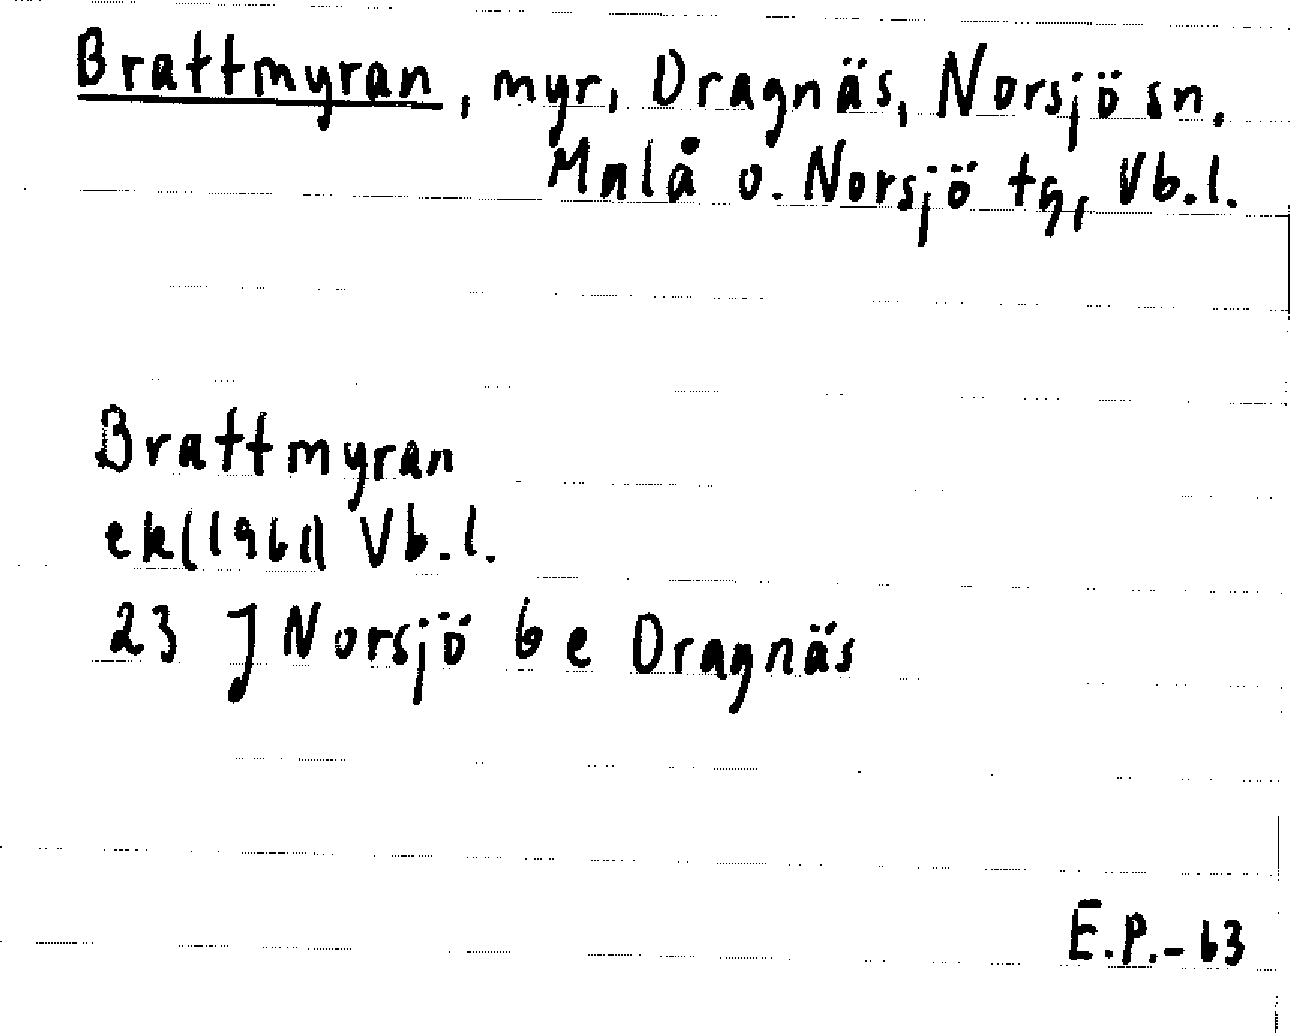 Brattmyran, myr, Dragnäs, Norsjö sn.
Malå o. Norsjö tg, Vb.l.
Brattmyran
ek(1961) Vb.l.
23 J Norsjö 6 e Dragnäs
E.P.-63